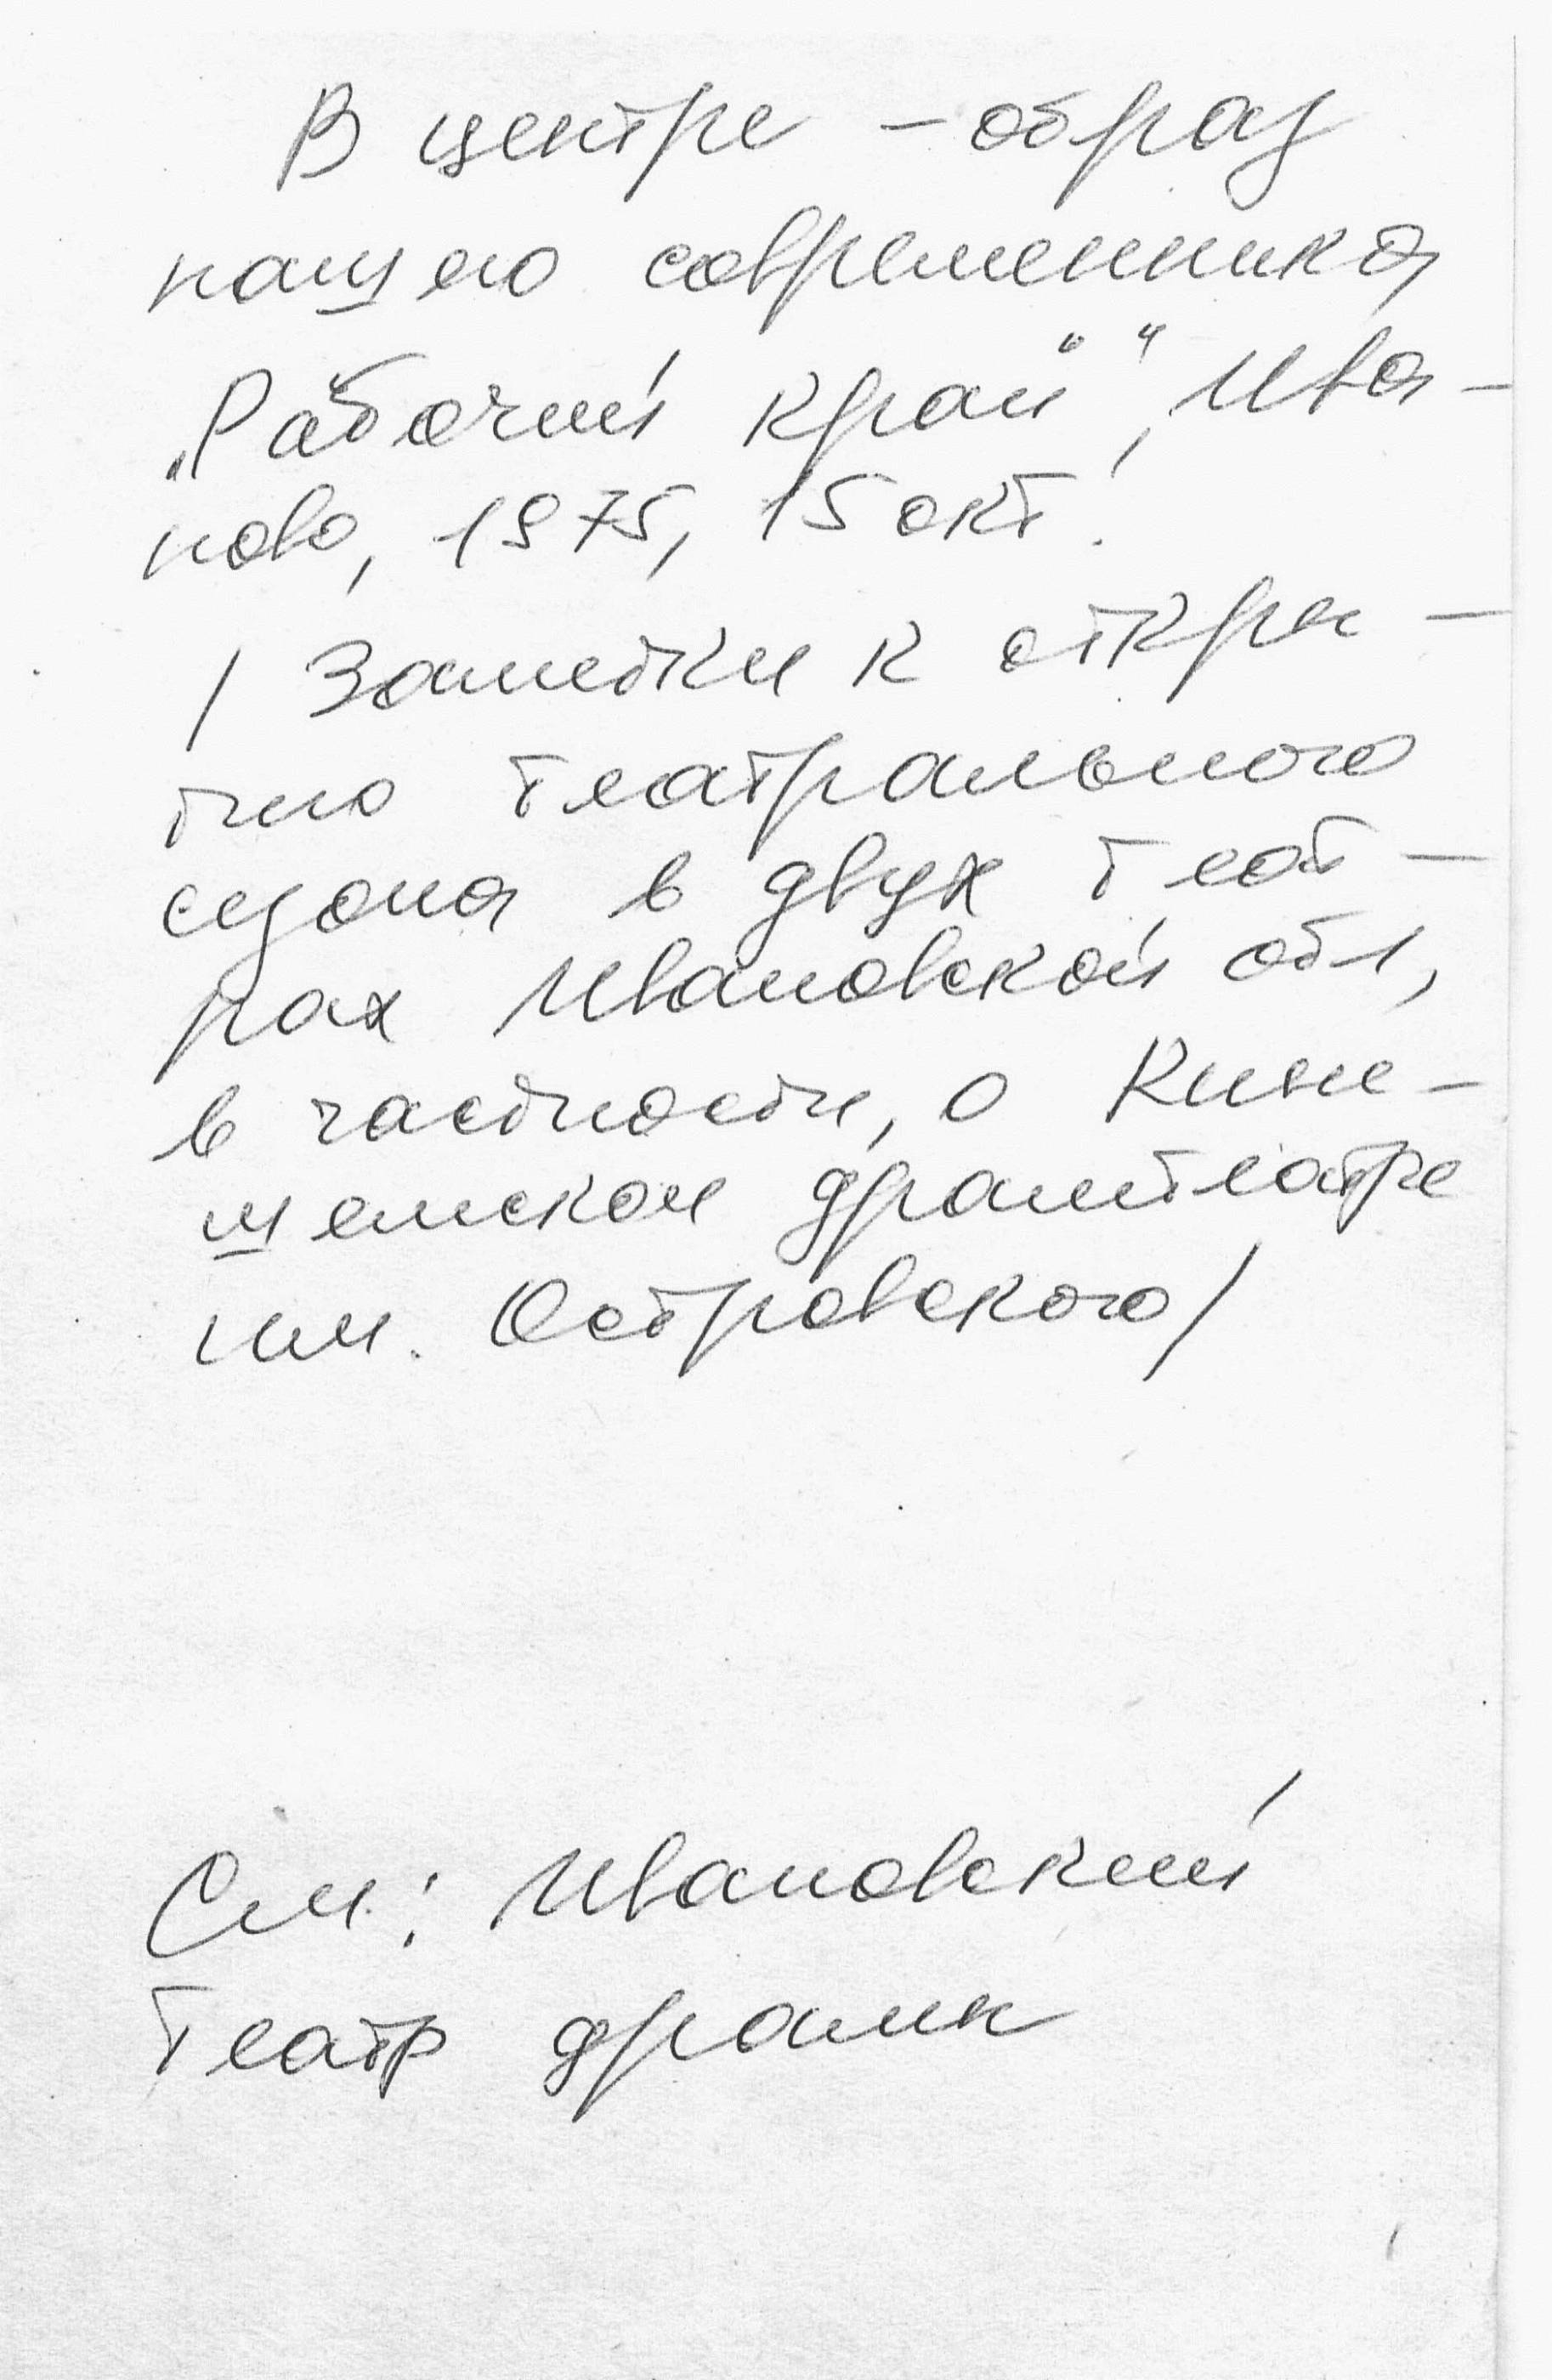 В центре – образ
нашего современника,
„Рабочий край“, Ива-
ново, 1975, 15 окт.
/ Заметки к откры-
тию театрального
сезона в двух теат-
рах Ивановской обл,
в частности, о Кине-
шемском драмтеатре
им. Островского/
См.: Ивановский
театр драмы